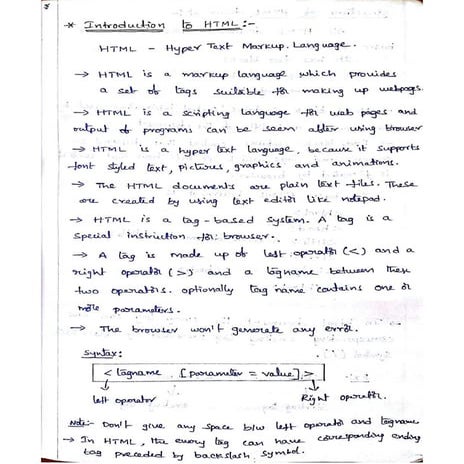 * Introduction to HTML:-
HTML - Hyper Text Markup Language.
→ HTML is a markup language which provides
a set of tags suitable for making up webpages.
→ HTML is a scripting language for web pages and
output of programs can be seen after using browser
→ HTML is a hyper text language, because it supports
font styled text, pictures, graphics and animations.
→ The HTML documents are plain text files. These
are created by using text editor like notepad.
→ HTML is a tag-based system. A tag is a
special instruction for browser.
→ A tag is made up of left operator (<) and a
right operator (>) and a tagname between these
two operators. optionally tag name contains one or
more parameters.
→ The browser won't generate any error.
Syntax:
< tagname [parameter = value] >
left operator Right operator.
Note:- Don't give any space b/w left operator and tagname
→ In HTML, the every tag can have corresponding ending
tag preceded by backslash symbol.